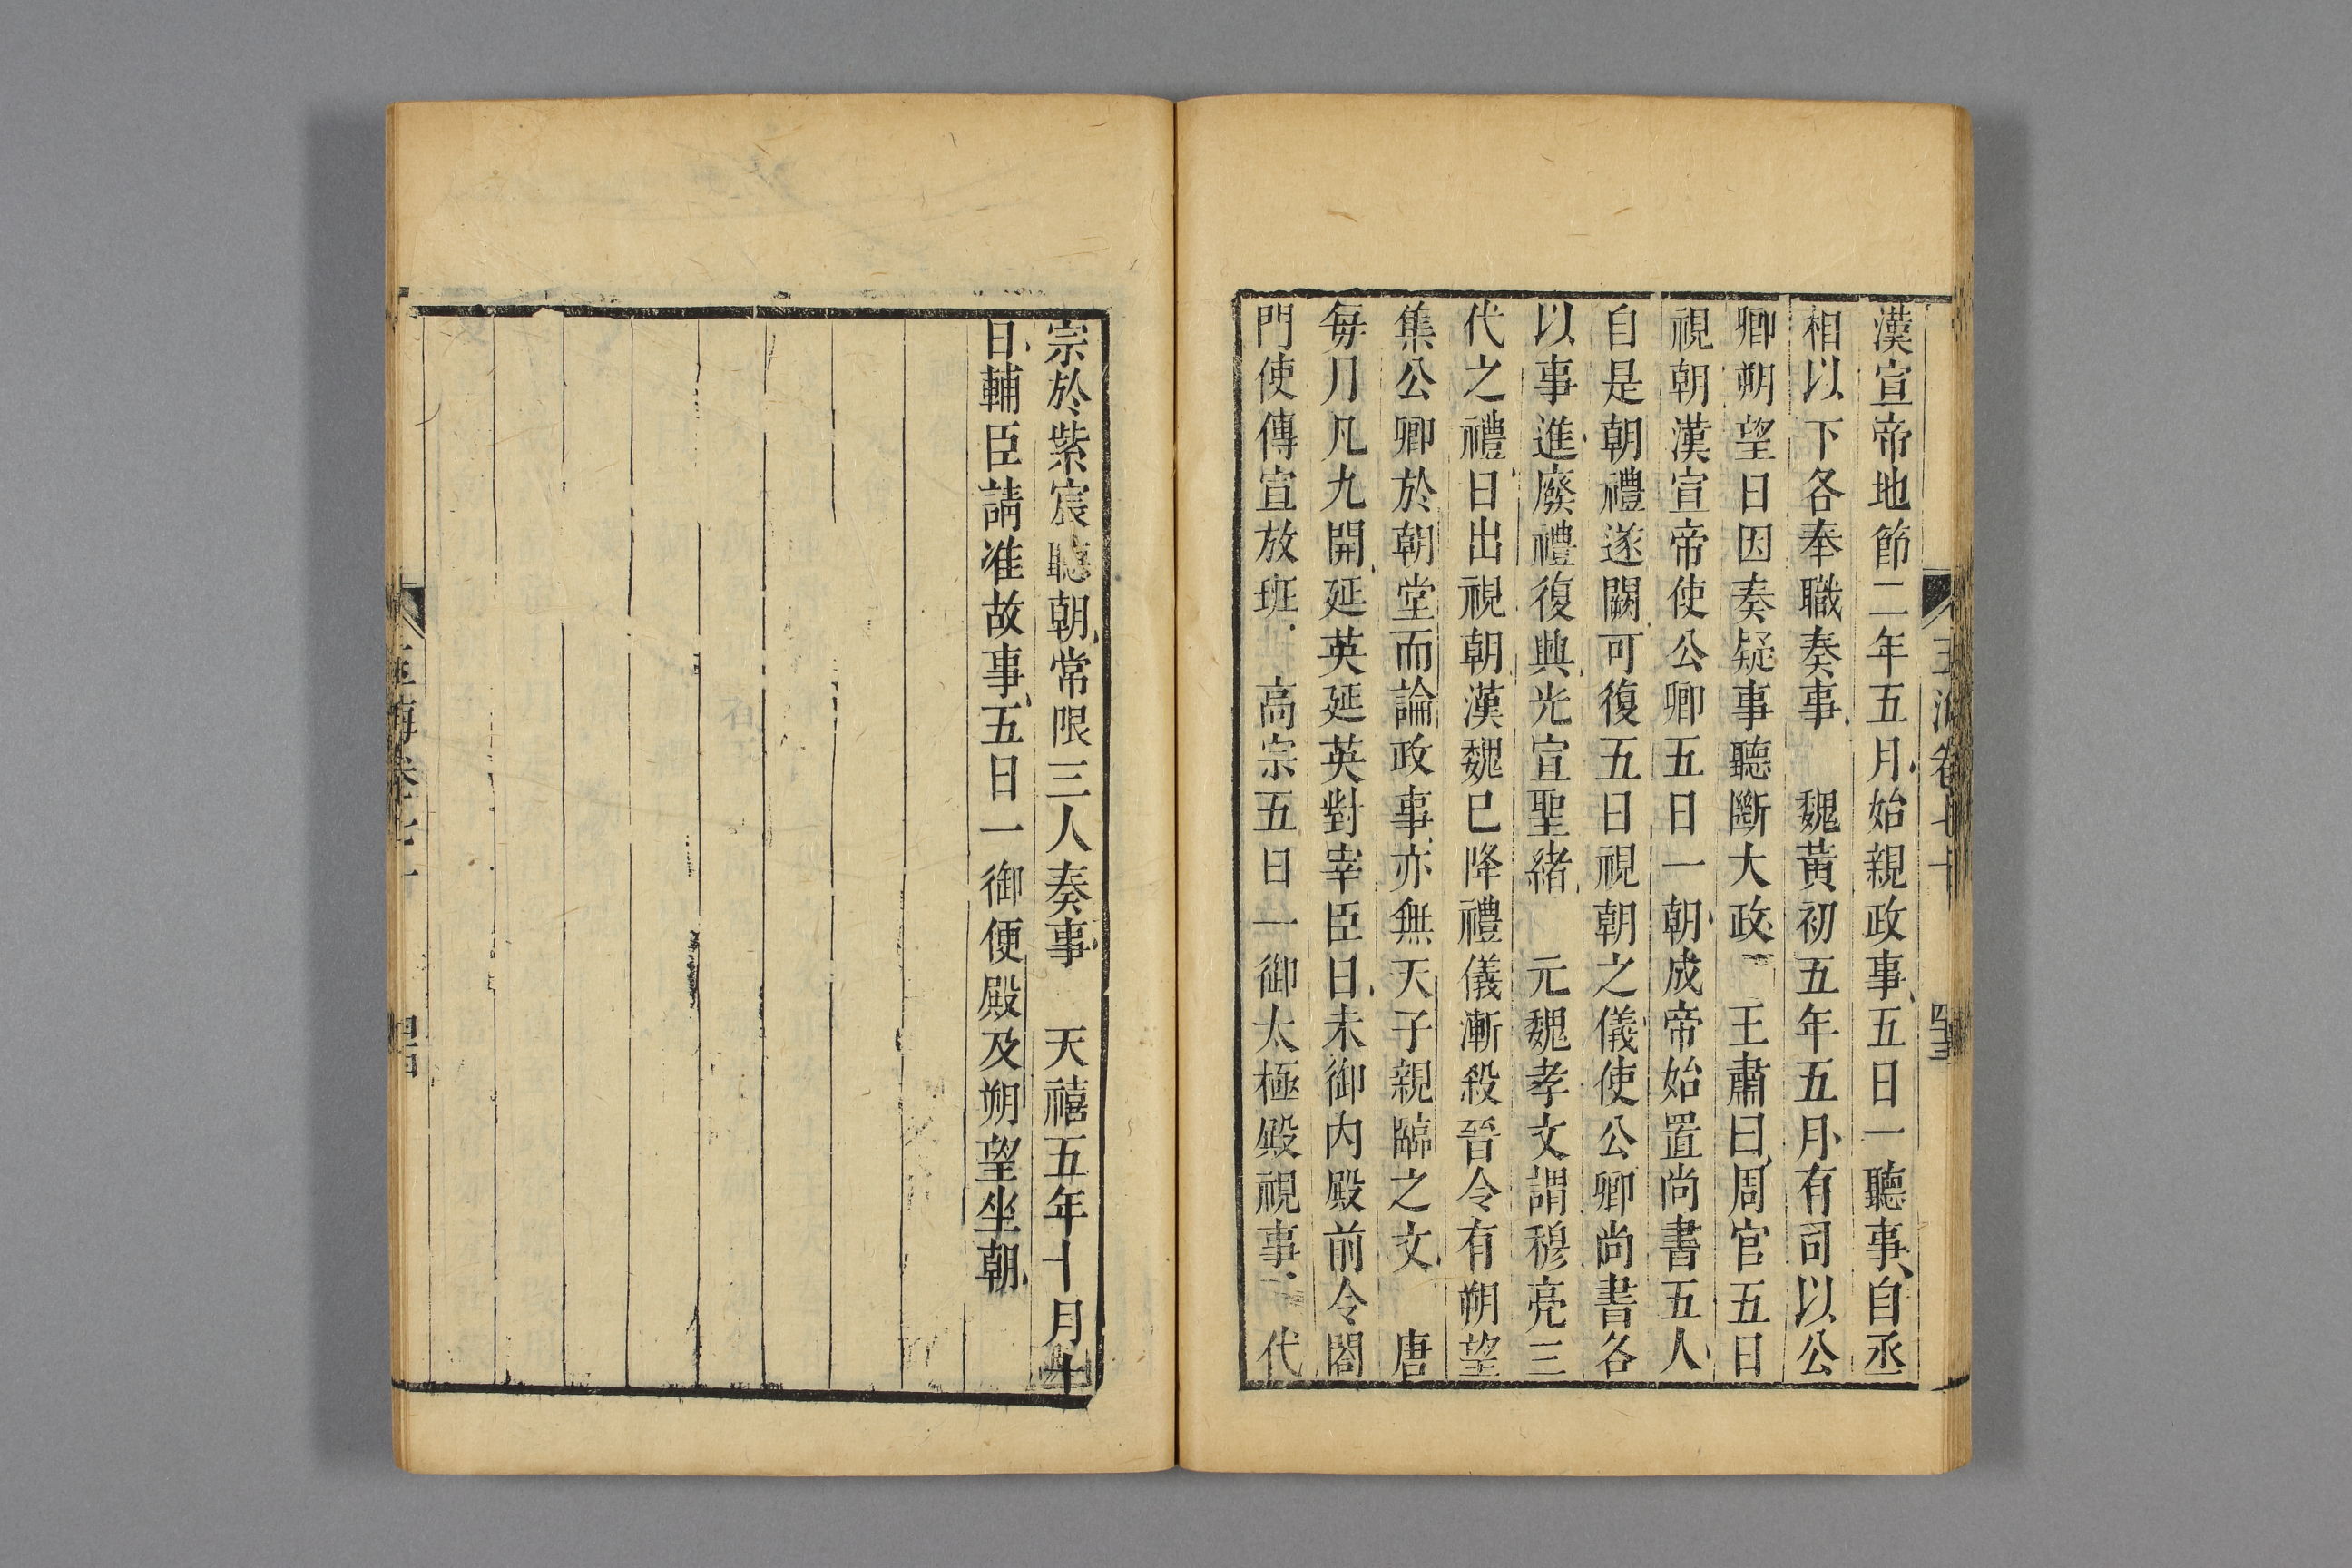 漢宣帝地節二年五月始親政事五日一聽事自丞
相以下各奉職奏事　魏黃初五年五月有司以公
卿朔望日因奏疑事聽斷大政　王肅曰周官五日
視朝漢宣帝使公卿五日一朝成帝始置尚書五人
自是朝禮遂闕可復五日視朝之儀使公卿尚書各
以事進廢禮復興光宣聖緒　元魏孝文謂穆亮三
代之禮日出視朝漢魏已降禮儀漸殺晉令有朔望
集公卿於朝堂而論政事亦無天子親臨之文　唐
每月凡九開延英延英對宰臣日未御內殿前令閤
門使傳宣放班　高宗五日一御太極殿視事　代
宗於紫宸聽朝常限三人奏事　天禧五年十月十
日輔臣請准故事五日一御便殿及朔望坐朝
玉海卷七十